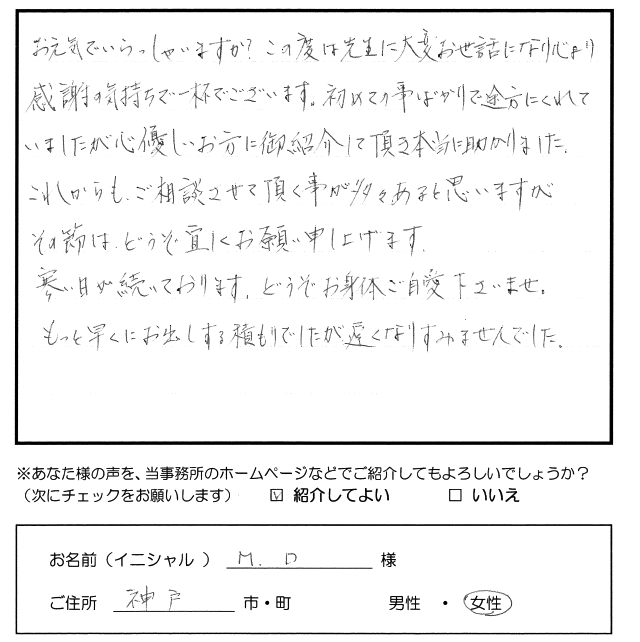 お元気でいらっしゃいますか? この度は先生に大変お世話になり心より
感謝の気持ちで一杯でございます。初めての事ばかりで途方にくれて
いましたが心優しいお方に御紹介して頂き本当に助かりました。
これからも、ご相談させて頂く事が多々あると思いますが
その節は、どうぞ宜しくお願い申し上げます。
寒い日が続いております。どうぞお身体ご自愛下さいませ。
もっと早くにお出しする積もりでしたが遅くなりすみませんでした。
※あなた様の声を、当事務所のホームページなどでご紹介してもよろしいでしょうか?
(次にチェックをお願いします) ☑ 紹介してよい □ いいえ
お名前(イニシャル) M. D 様
ご住所 神戸 市・町 男性 ・ 女性